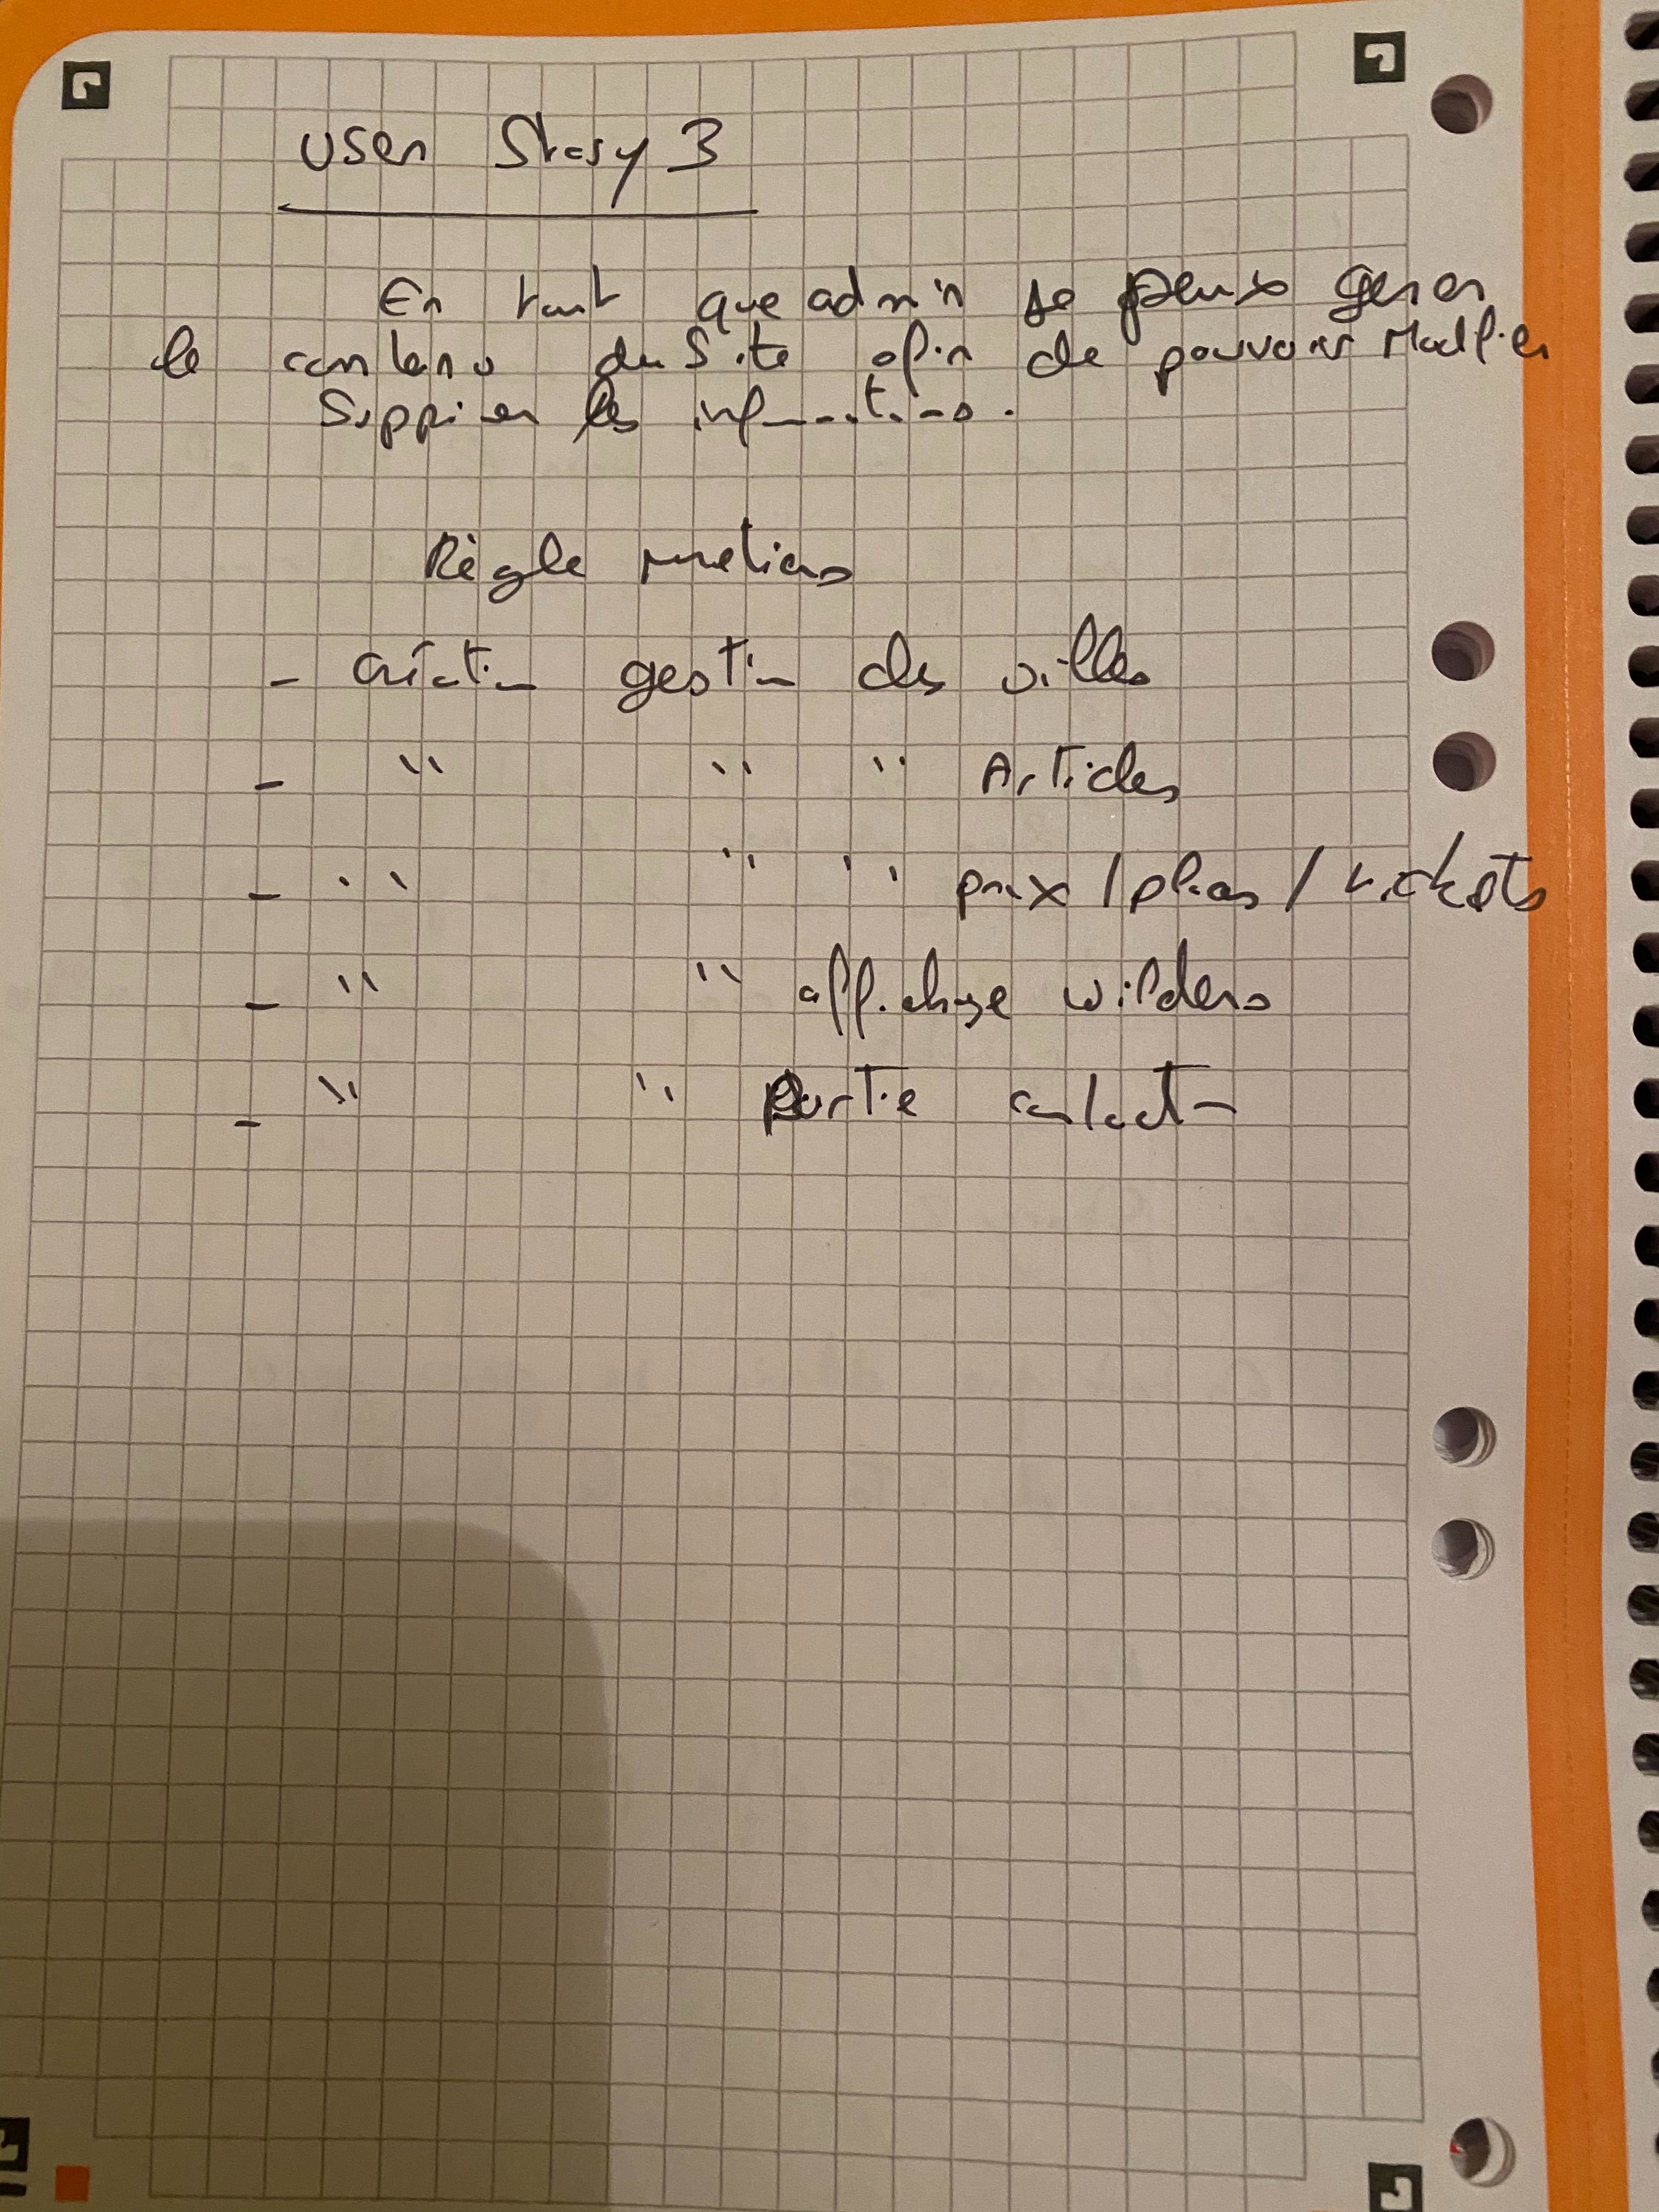 User Story 3
En tant que admin je peux gerer
le contenu du Site afin de pouvoir Modifier
Supprimer les informations.
Règle metiers
- création gestion des villes
- " " " Articles
- " " " prix / / tickets
- " " affichage wilders
- " " partie